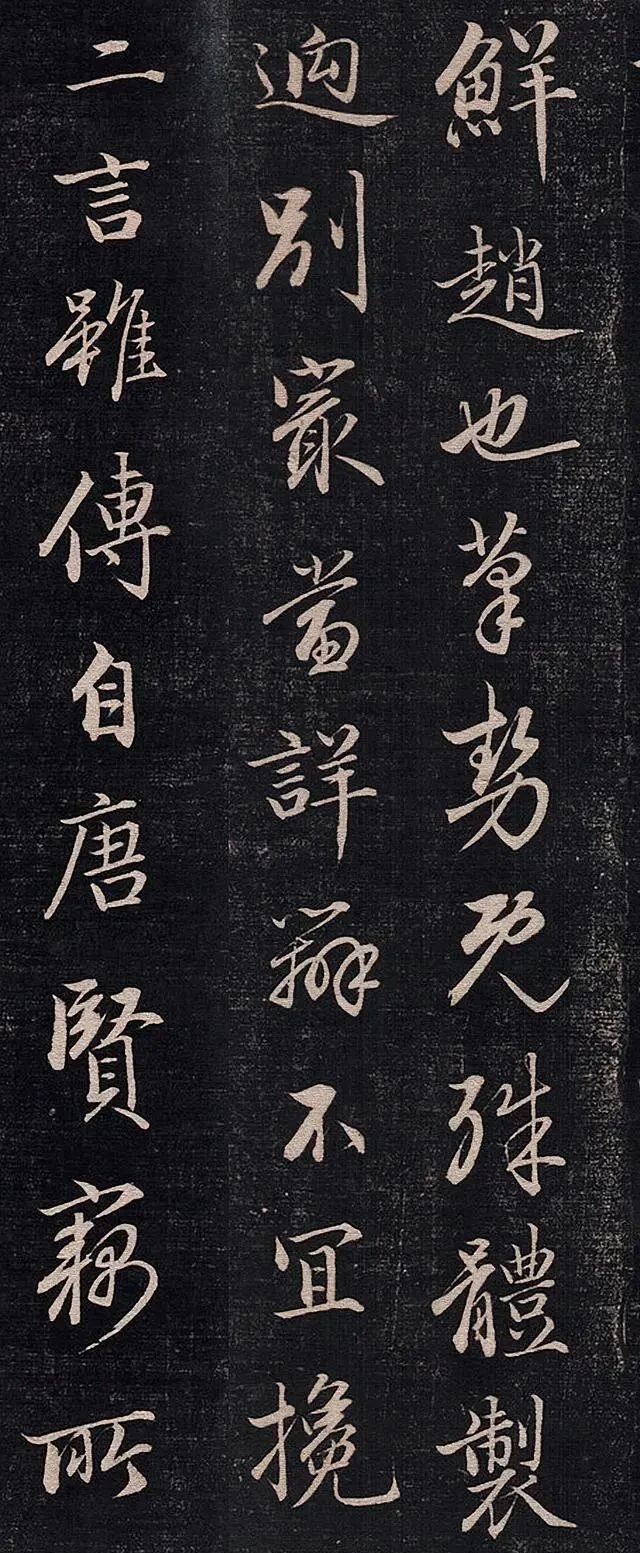 鮮趙也筆勢既殊體製
迥別寂當詳辯不宜攙
二言雖傳自唐賢藕所